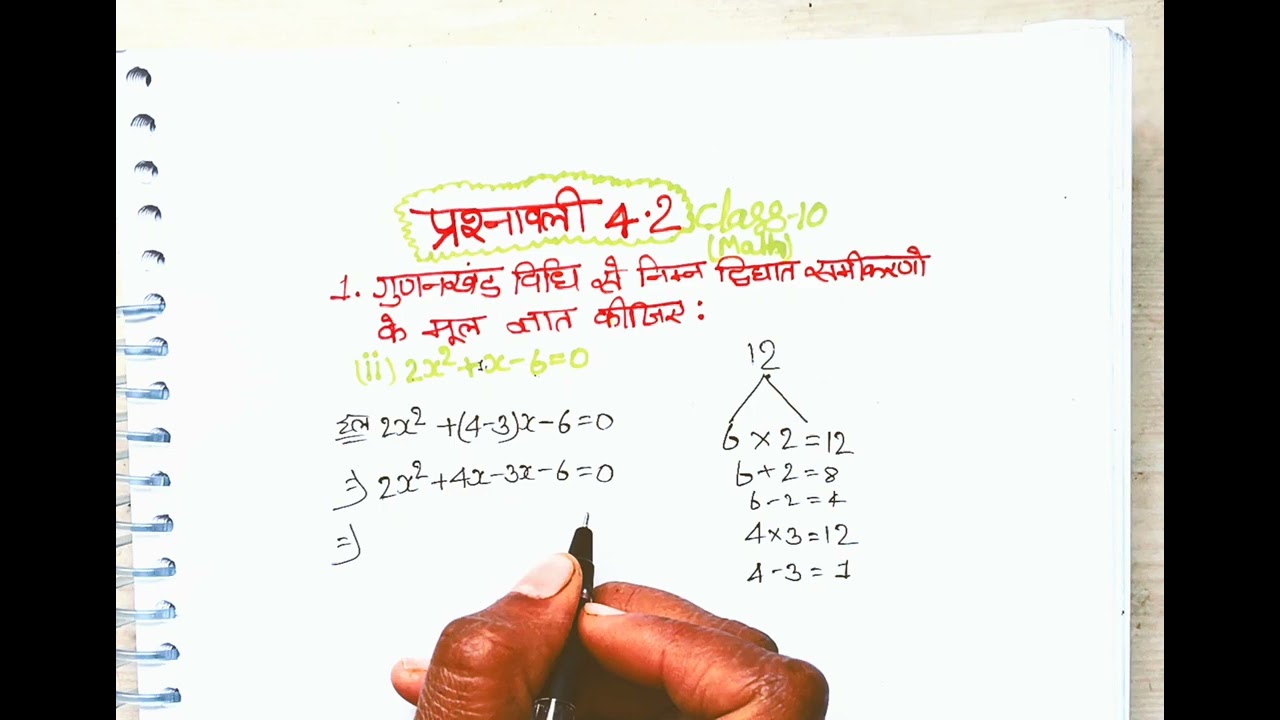 प्रश्नावली 4.2 Class-10
(Math)
1. गुणनखंड विधि से निम्न द्विघात समीकरणो
के मूल ज्ञात कीजिए :
(ii) 2x² + 1x - 6 = 0
हल 2x² + (4-3)x - 6 = 0
⇒ 2x² + 4x - 3x - 6 = 0
⇒
12
6 × 2 = 12
6 + 2 = 8
6 - 2 = 4
4 × 3 = 12
4 - 3 = 1